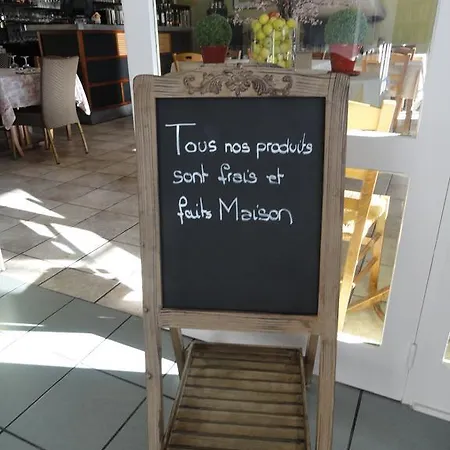 Tous nos produits
sont frais et
faits Maison